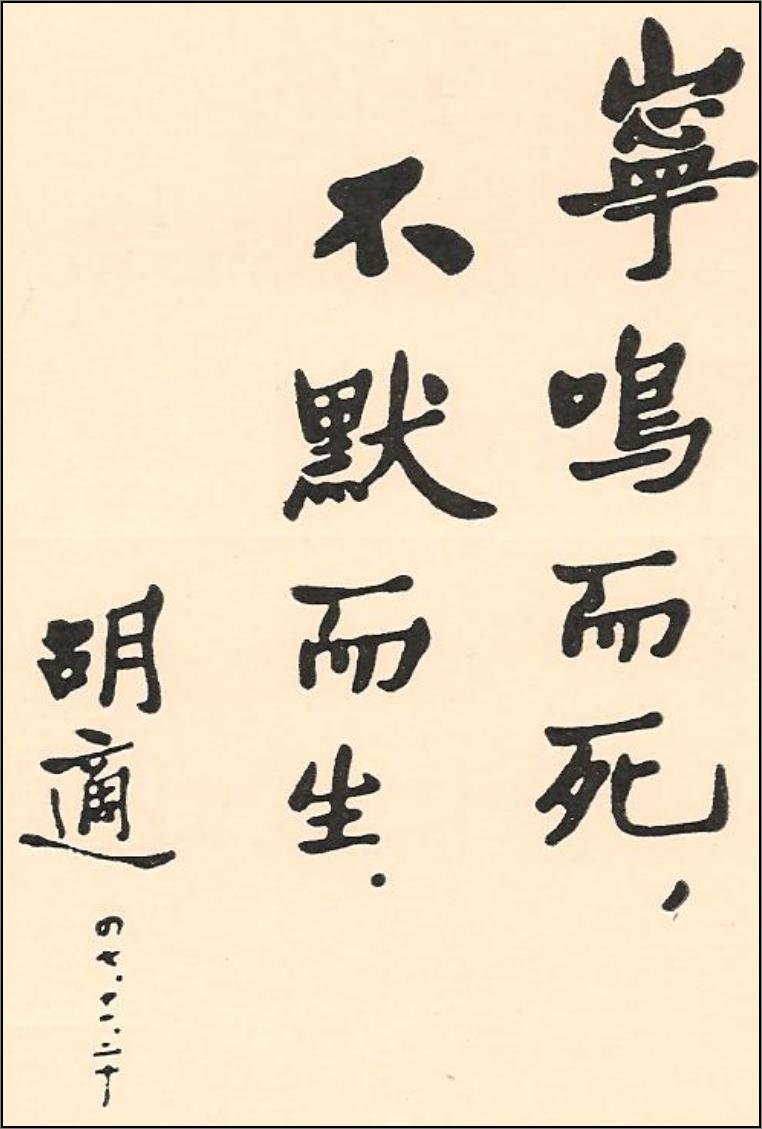 寧鳴而死，
不默而生．
胡適
四七．十二．二十